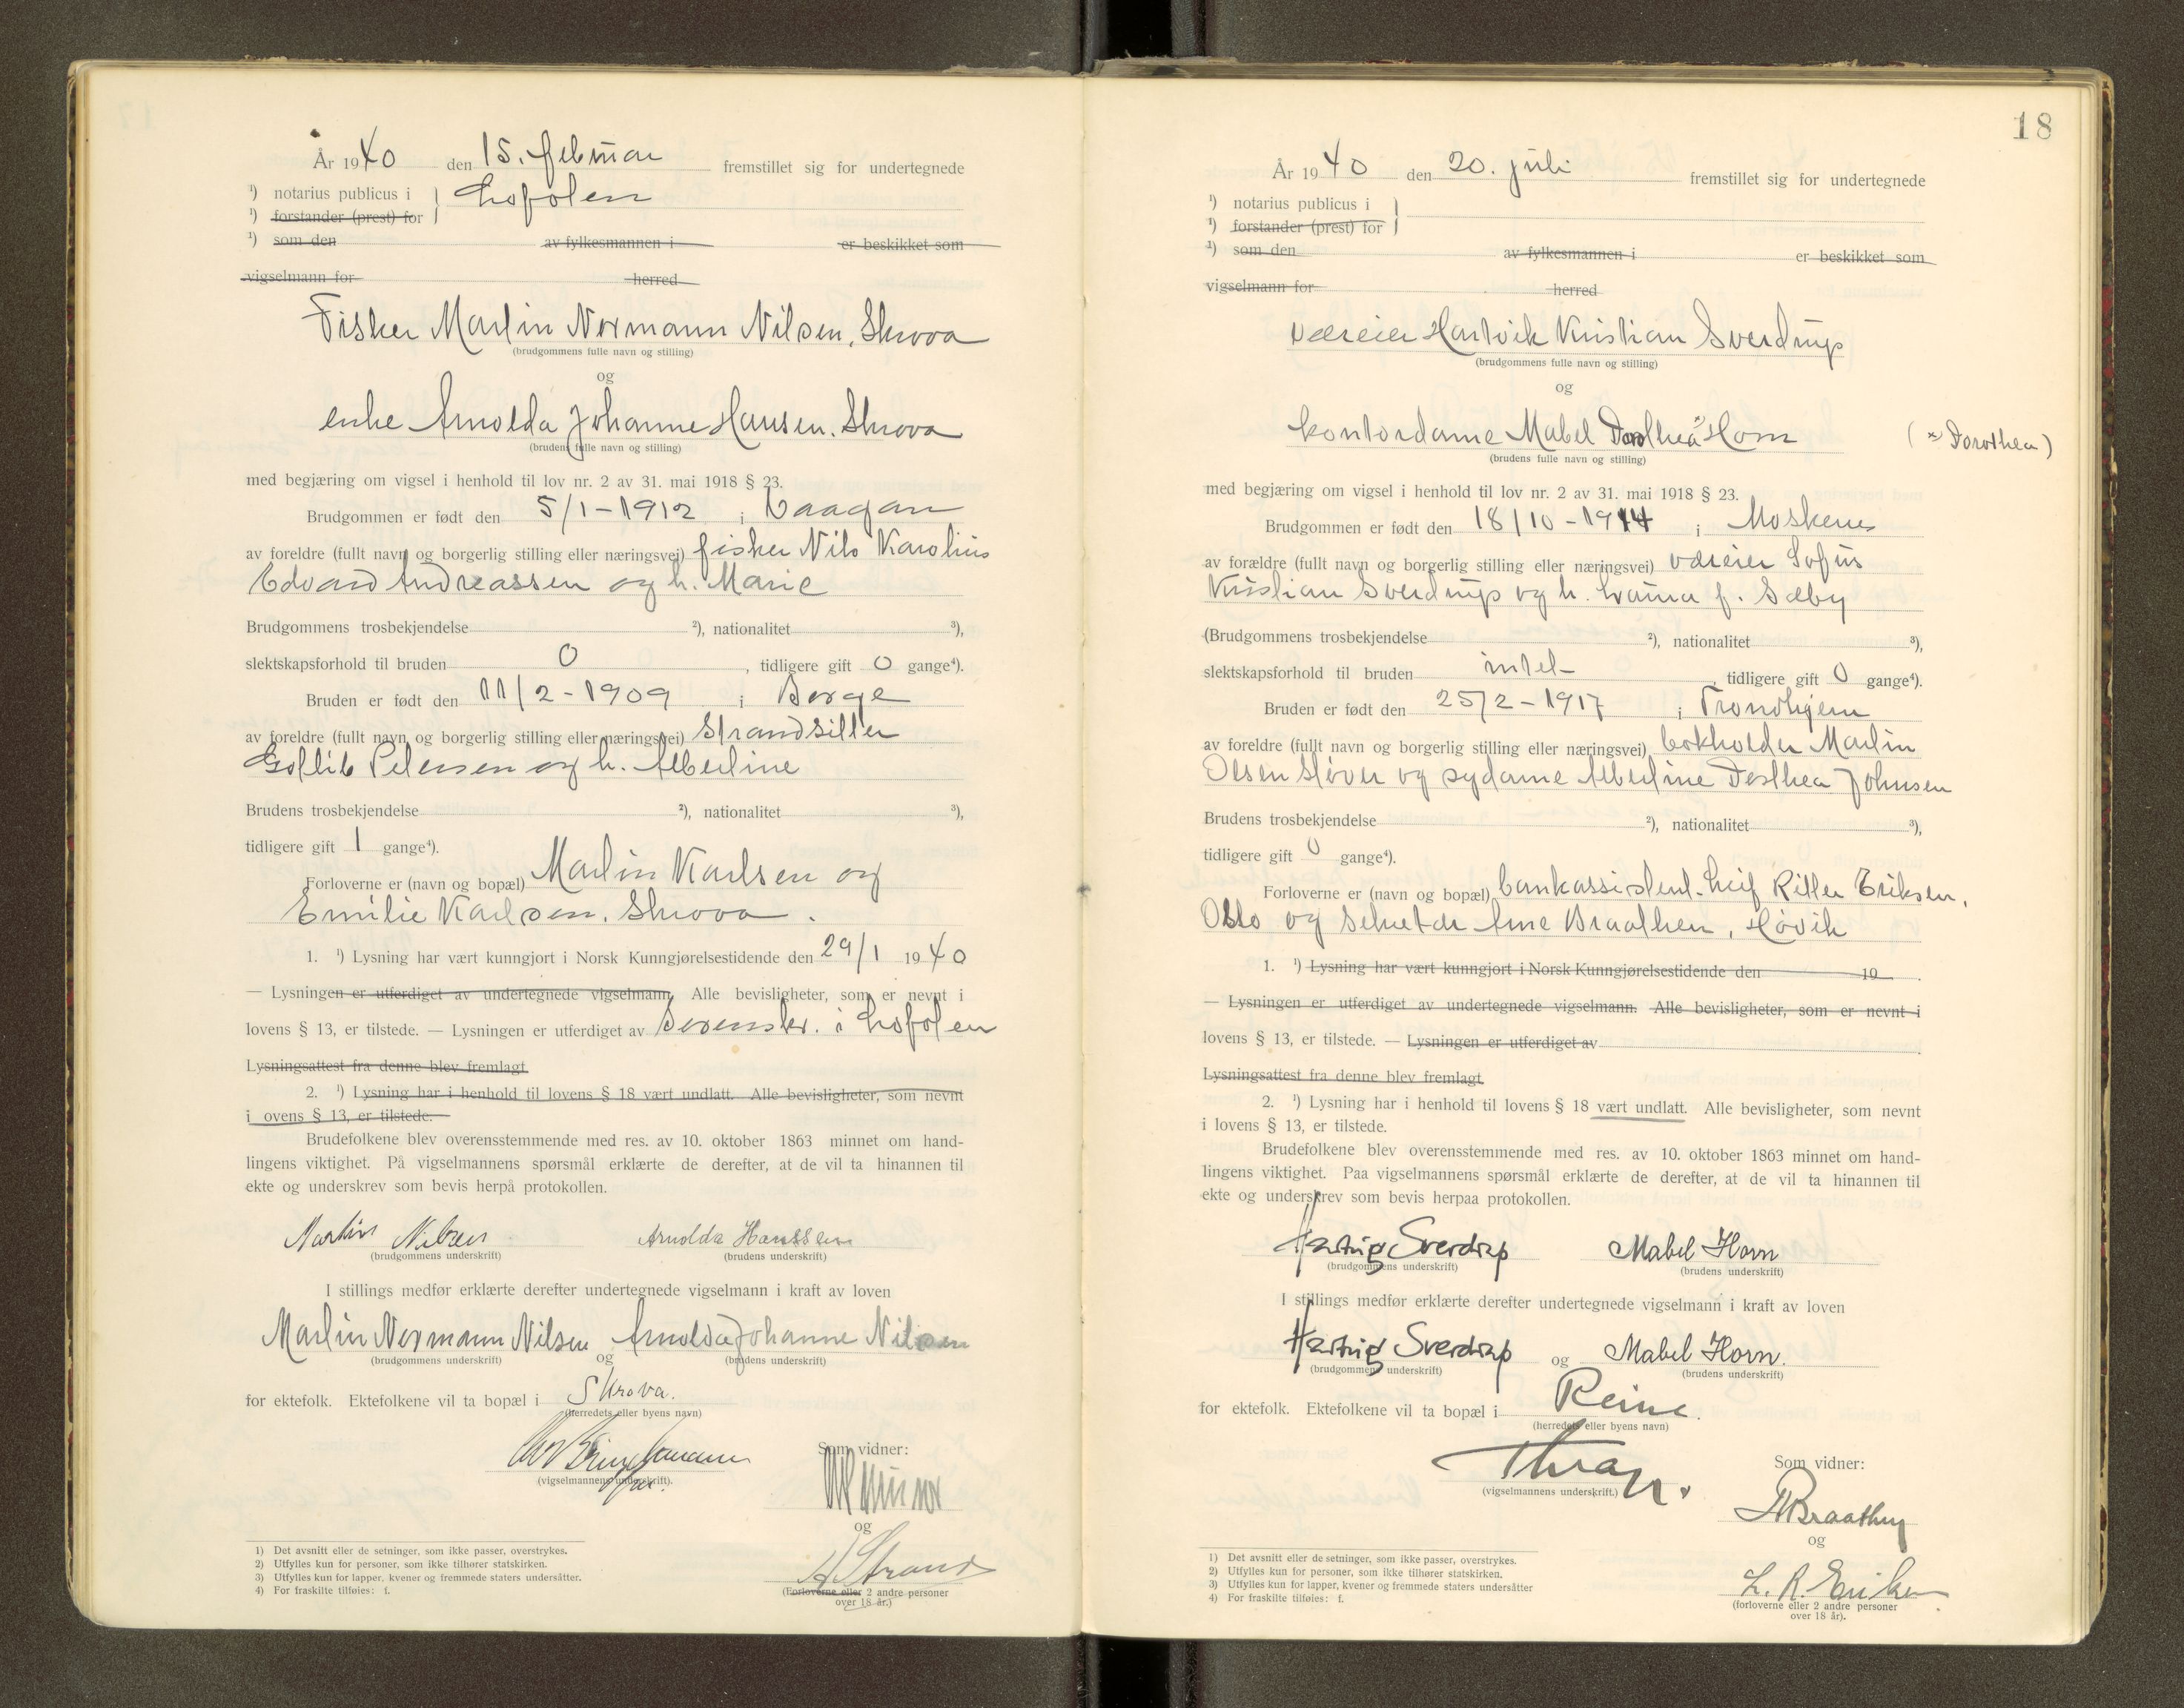 År 1940 den 15. februar fremstillet sig for undertegnede
¹) notarius publicus i Lofoten
¹) forstander (prest) for
¹) som den av fylkesmannen i er beskikket som
vigselmann for herred
Fisker Martin Normann Nilsen, Skrova
(brudgommens fulle navn og stilling)
og
enke Arnolda Johanne Hansen, Skrova
(brudens fulle navn og stilling)
med begjæring om vigsel i henhold til lov nr. 2 av 31. mai 1918 § 23.
Brudgommen er født den 5/1-1912 i Vaagan
av foreldre (fullt navn og borgerlig stilling eller næringsvei) fisker Nils Karolius
Edvard Andreassen og h. Marie
Brudgommens trosbekjendelse ²), nationalitet ³),
slektskapsforhold til bruden 0, tidligere gift 0 gange⁴).
Bruden er født den 11/2-1909 i Borge
av foreldre (fullt navn og borgerlig stilling eller næringsvei) strandsitter
Gotlib Petersen og h. Albertine
Brudens trosbekjendelse ²), nationalitet ³),
tidligere gift 1 gange⁴).
Forloverne er (navn og bopæl) Martin Karlsen og
Emilie Karlsen, Skrova.
1. ¹) Lysning har vært kunngjort i Norsk Kunngjørelsestidende den 29/1 1940
— Lysningen er utferdiget av undertegnede vigselmann. Alle bevisligheter, som er nevnt i
lovens § 13, er tilstede. — Lysningen er utferdiget av Sorenskr. i Lofoten
Lysningsattest fra denne blev fremlagt
2. ¹) Lysning har i henhold til lovens § 18 vært undlatt. Alle bevisligheter, som nevnt
i ovens § 13, er tilstede.
Brudefolkene blev overensstemmende med res. av 10. oktober 1863 minnet om hand-
lingens viktighet. På vigselmannens spørsmål erklærte de derefter, at de vil ta hinannen til
ekte og underskrev som bevis herpå protokollen.
Martin Nilsen Arnolda Hanssen
(brudgommens underskrift) (brudens underskrift)
I stillings medfør erklærte derefter undertegnede vigselmann i kraft av loven
Martin Normann Nilsen og Arnolda Johanne Nilsen
(brudgommens underskrift) (brudens underskrift)
for ektefolk. Ektefolkene vil ta bopæl i Skrova.
(herredets eller byens navn)
(vigselmannens underskrift).
Som vidner:
og
A Strand
(Forloverne eller 2 andre personer
over 18 år.)
1) Det avsnitt eller de setninger, som ikke passer, overstrykes.
2) Utfylles kun for personer, som ikke tilhører statskirken.
3) Utfylles kun for lapper, kvener og fremmede staters undersåtter.
4) For fraskilte tilføies: f.
18
År 1940 den 20. juli fremstillet sig for undertegnede
¹) notarius publicus i
¹) forstander (prest) for
¹) som den av fylkesmannen i er beskikket som
vigselmann for herred
væreier Hartvik Kristian Sverdrup
(brudgommens fulle navn og stilling)
og
kontordame Mabel Dorothea ˣ Horn (ˣ Dorothea)
(brudens fulle navn og stilling)
med begjæring om vigsel i henhold til lov nr. 2 av 31. mai 1918 § 23.
Brudgommen er født den 18/10-1914 i Moskenes
av forældre (fullt navn og borgerlig stilling eller næringsvei) væreier Sofus
Kristian Sverdrup og h. Laura f. Sæby
(Brudgommens trosbekjendelse ²), nationalitet ³),
slektskapsforhold til bruden intet, tidligere gift 0 gange⁴).
Bruden er født den 25/2-1917 i Trondhjem
av foreldre (fullt navn og borgerlig stilling eller næringsvei) bokholder Martin
Olsen Høver og sydame Albertine Dorthea Johnsen
Brudens trosbekjendelse ²), nationalitet ³),
tidligere gift 0 gange⁴).
Forloverne er (navn og bopæl) bankassistent Leif Ritter Eriksen,
Oslo og sekretær Arne Braathen, Høvik
1. ¹) Lysning har vært kunngjort i Norsk Kunngjørelsestidende den 19
— Lysningen er utferdiget av undertegnede vigselmann. Alle bevisligheter, som er nevnt i
lovens § 13, er tilstede. — Lysningen er utferdiget av
Lysningsattest fra denne blev fremlagt
2. ¹) Lysning har i henhold til lovens § 18 vært undlatt. Alle bevisligheter, som nevnt
i lovens § 13, er tilstede.
Brudefolkene blev overensstemmende med res. av 10. oktober 1863 minnet om hand-
lingens viktighet. Paa vigselmannens spørsmål erklærte de derefter, at de vil ta hinannen til
ekte og underskrev som bevis herpaa protokollen.
Hartvig Sverdrup Mabel Horn
(brudgommens underskrift) (brudens underskrift)
I stillings medfør erklærte derefter undertegnede vigselmann i kraft av loven
Hartvig Sverdrup og Mabel Horn.
(brudgommens underskrift) (brudens underskrift)
for ektefolk. Ektefolkene vil ta bopæl i Reine.
(herredets eller byens navn)
Thrap.
(vigselmannens underskrift.)
Som vidner:
A Braathen
og
L. R. Eriksen
(forloverne eller 2 andre personer
over 18 år).
1) Det avsnitt eller de setninger, som ikke passer, overstrykes.
2) Utfylles kun for personer, som ikke tilhører statskirken.
3) Utfylles kun for lapper, kvener og fremmede staters undersåtter
4) For fraskilte tilføies: f.